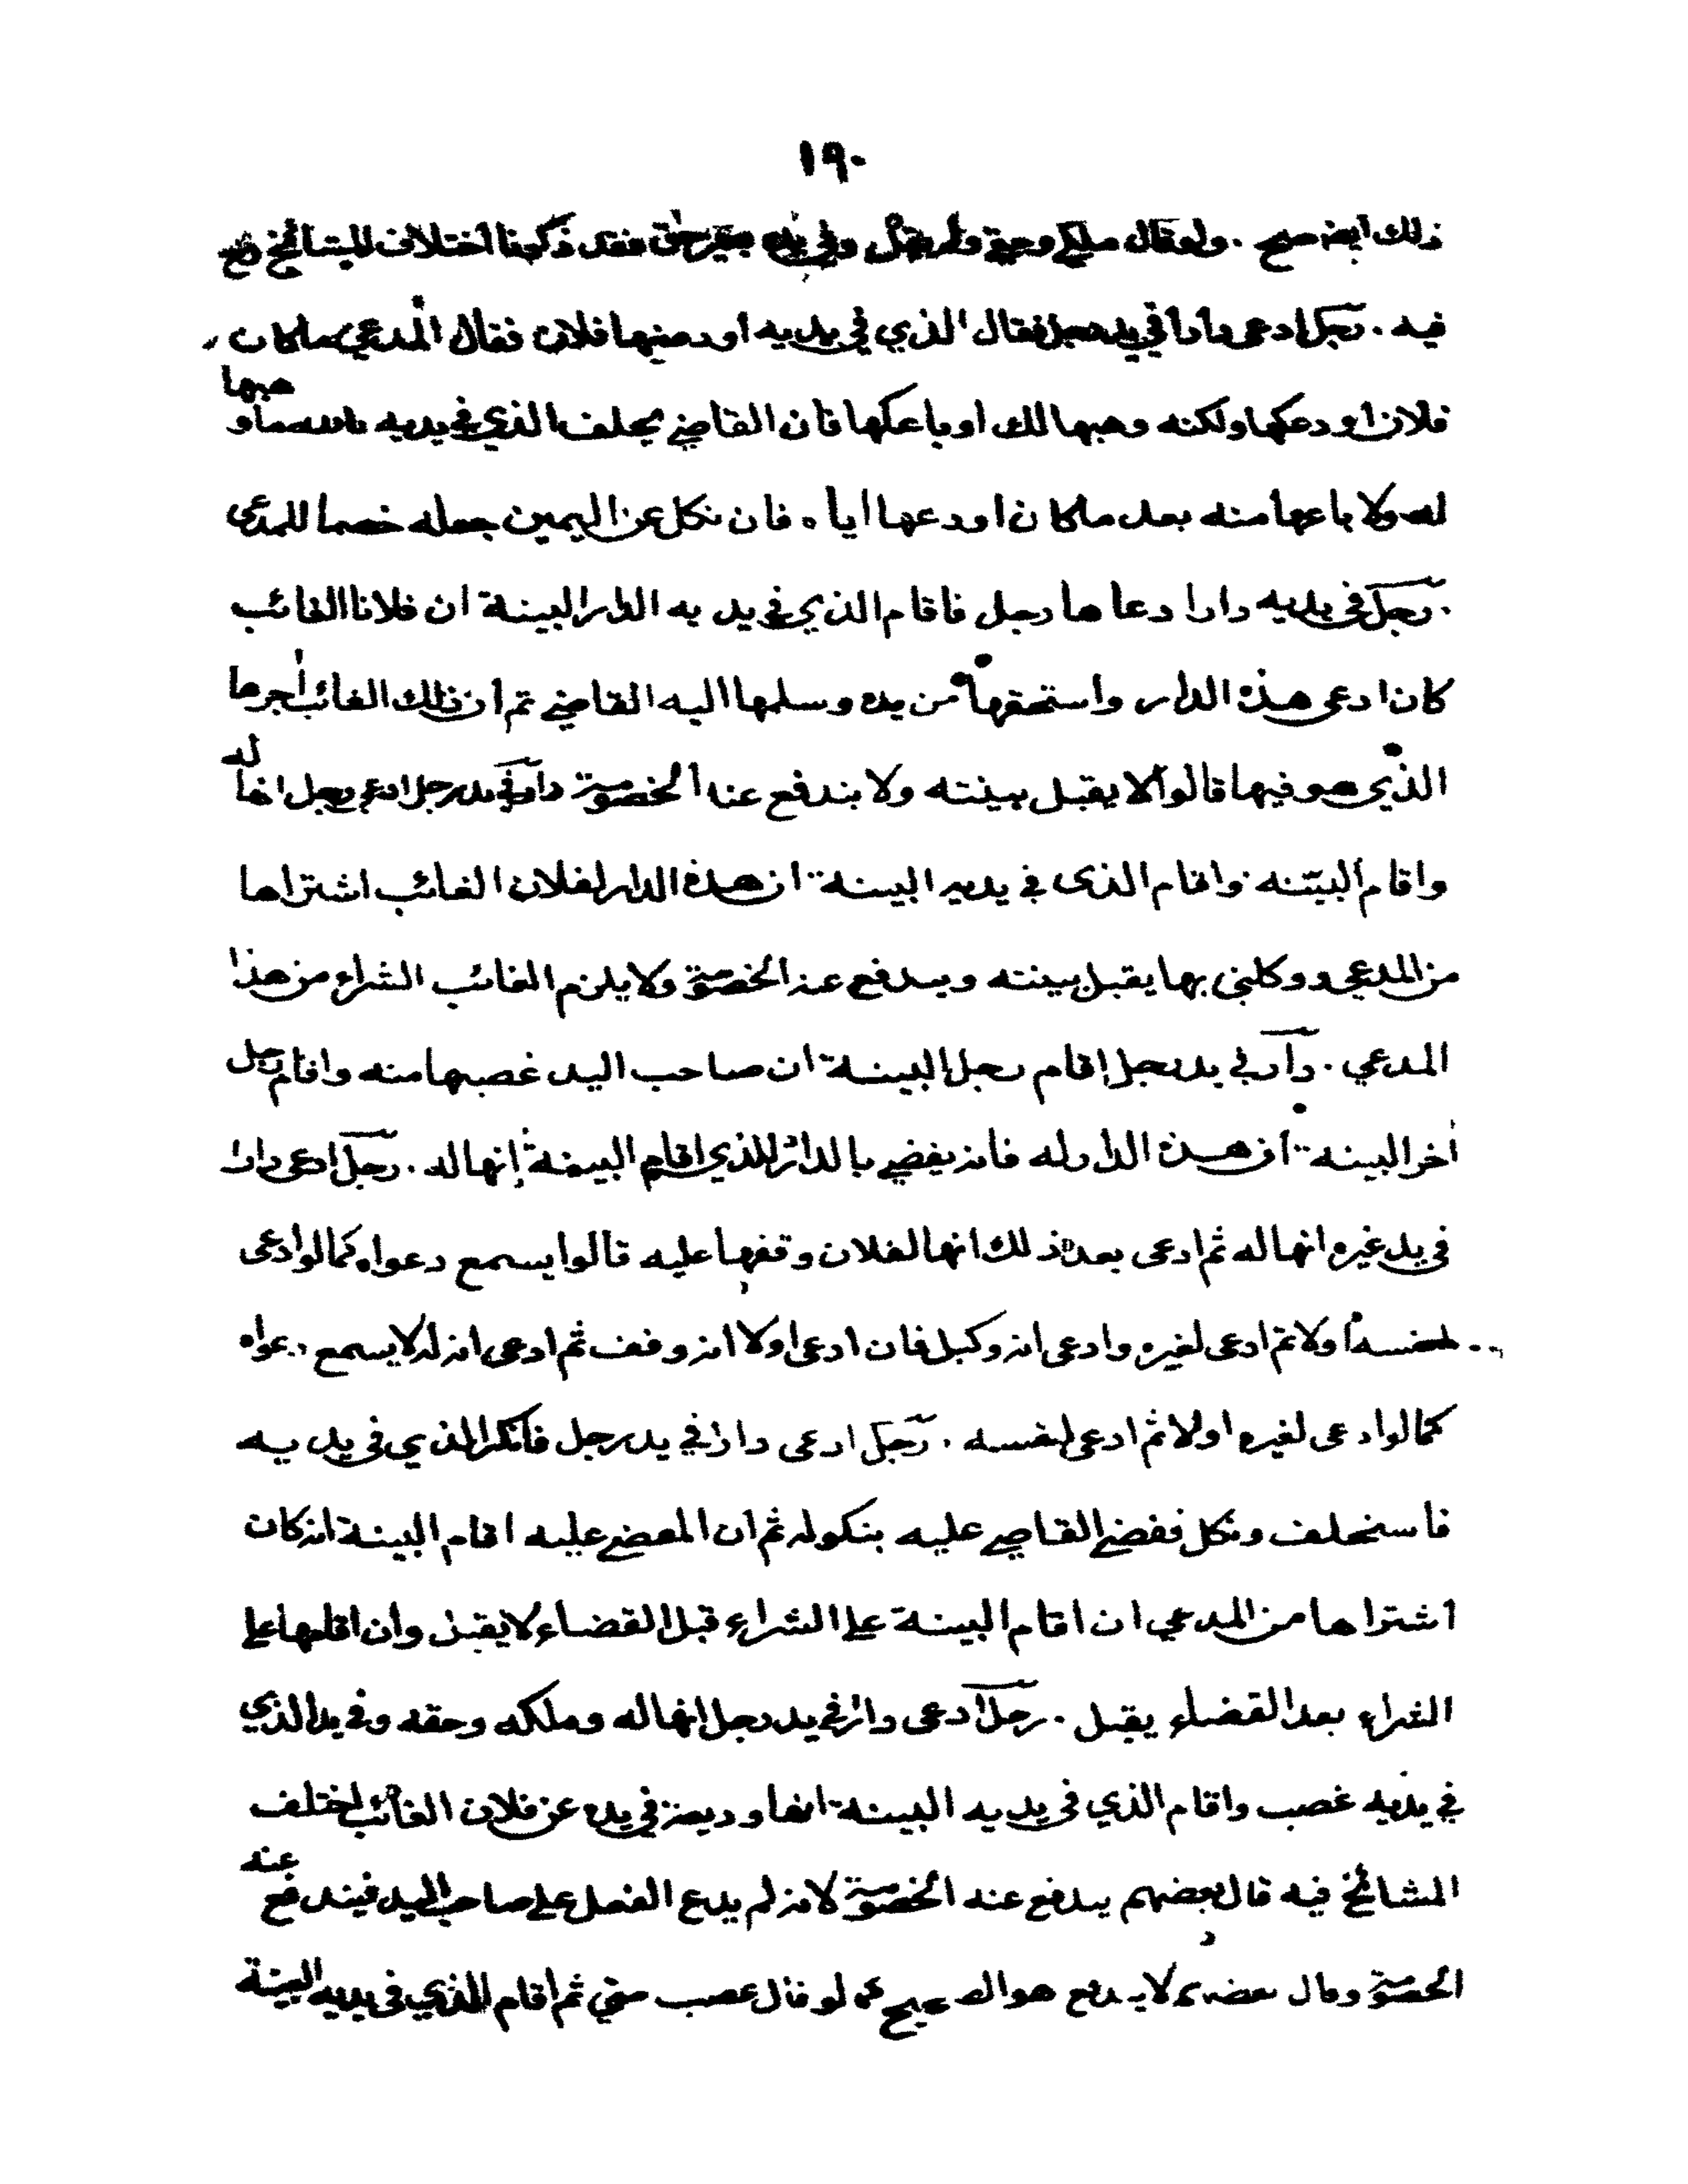 ١٩٠
ذلك ايضا صحيح . ولو قال ملكي وحقي ولم يقل وفي يده بغير حق فقد ذكرنا اختلاف المشائخ رح
فيه . رجل ادعى دارا في يد رجل فقال الذي في يديه اودعنيها فلان فقال المدعي ما كان
فلان اودعكها ولكنه وهبها لك او باعكها فان القاضي يحلف الذي في يديه بالله ما وهبها
له ولا باعها منه بعد ما كان اودعها اياه فان نكل عن اليمين جعله خصما للمدعى
. رجل في يديه دار ادعاها رجل فاقام الذي في يديه الدار البينة ان فلانا الغائب
كان ادعى هذه الدار واستحقها من يده وسلمها اليه القاضي ثم ان ذلك الغائب اجرها
الذي هو فيها قالوا لا يقبل بينته ولا يندفع عنه الخصومة دار في يد رجل ادعى رجل انها له
واقام البينه واقام الذى في يديه البينة ان هذه الدار لفلان الغائب اشتراها
من المدعي ووكلني بها يقبل بينته ويندفع عنه الخصومة ولا يلزم الغائب الشراء من هذا
المدعي . دار في يد رجل اقام رجل البينة ان صاحب اليد غصبها منه واقام رجل
اخر البينه ان هذه الدار له فانه يقضي بالدار للذي اقام البينة انها له . رجل ادعى دارا
في يد غيره انها له ثم ادعى بعد ذلك انها لفلان وقفها عليه قالوا يسمع دعواه كما لو ادعى
لنفسه اولا ثم ادعى لغيره وادعى انه وكيل فان ادعى اولا انه وقف ثم ادعى انه له لا يسمع دعواه
كما لو ادعى لغيره اولا ثم ادعى لنفسه . رجل ادعى دارا في يد رجل فانكر الذي في يديه
فاستحلف ونكل فقضى القاضي عليه بنكوله ثم ان المقضي عليه اقام البينة انه كان
اشتراها من المدعي ان اقام البينة على الشراء قبل القضاء لا يقبل وان اقامها على
الشراء بعد القضاء يقبل . رجل ادعى دارا في يد رجل انها له وملكه وحقه وفي يد الذي
في يديه غصب واقام الذي في يديه البينة انها وديعة في يده عن فلان الغائب اختلف
المشائخ فيه قال بعضهم يندفع عنه الخصومة لانه لم يدع الفعل على صاحب اليد فيندفع عنه
الخصومة وقال بعضهم لا يندفع هو الصحيح كما لو قال غصب مني ثم اقام الذي في يديه البينة